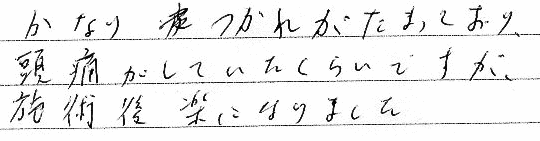 かなり つかれがたまっており、
頭痛がしていたくらいですが、
施術後楽になりました